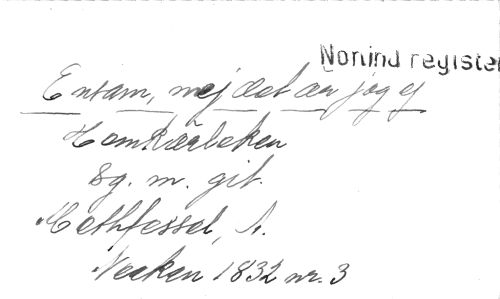 Noʀind registe
Ensam, nej det är jag ej
Hemkärleken
Sg. m. git.
Methfessel, A.
Necken 1832 nr. 3